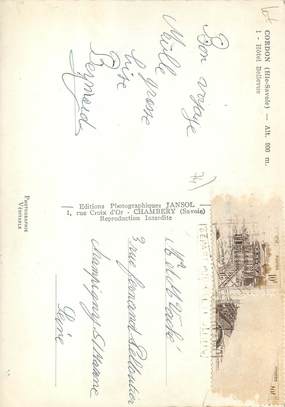 CORDON (Hte-Savoie) — Alt. 900 m.
1 - Hôtel Bellevue
Bon voyage
Mille
grosse
bise
Bernard
Editions Photographiques JANSOL
1, rue Croix d'Or - CHAMBERY (Savoie)
Reproduction Interdite
PHOTOGRAPHIE
VÉRITABLE
3 rue Fernand Pelloutier
Champigny S/Marne
Seine